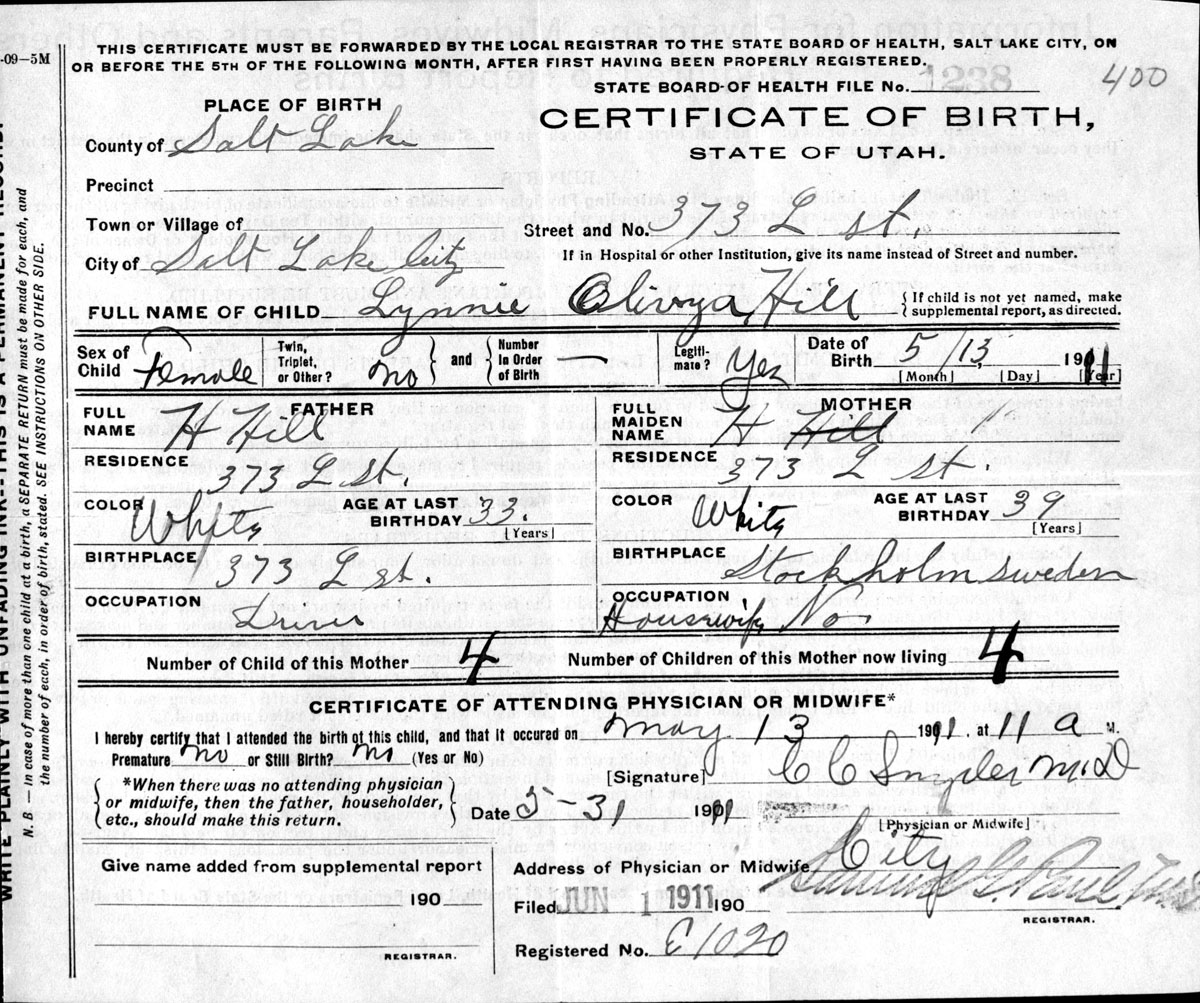 -09-5M
THIS CERTIFICATE MUST BE FORWARDED BY THE LOCAL REGISTRAR TO THE STATE BOARD OF HEALTH, SALT LAKE CITY, ON
OR BEFORE THE 5TH OF THE FOLLOWING MONTH, AFTER FIRST HAVING BEEN PROPERLY REGISTERED.
400
STATE BOARD OF HEALTH FILE No. 1238
PLACE OF BIRTH
CERTIFICATE OF BIRTH,
STATE OF UTAH.
County of Salt Lake
Precinct
Town or Village of
Street and No. 373 L st.
City of Salt Lake City
If in Hospital or other Institution, give its name instead of Street and number.
FULL NAME OF CHILD Lynnie Olivya Hill
{ If child is not yet named, make
supplemental report, as directed.
Sex of Child Female
Twin, Triplet, or Other? no
and
Number In Order of Birth —
Legiti- mate? Yes
Date of Birth 5/13, 1911
[Month] [Day] [Year]
FATHER
FULL NAME H Hill
RESIDENCE 373 L st.
COLOR White
AGE AT LAST BIRTHDAY 33.
[Years]
BIRTHPLACE 373 L st.
OCCUPATION Driver
MOTHER
FULL MAIDEN NAME H Hill
RESIDENCE 373 L st.
COLOR White
AGE AT LAST BIRTHDAY 39
[Years]
BIRTHPLACE Stockholm Sweden
OCCUPATION Housewife No
Number of Child of this Mother 4
Number of Children of this Mother now living 4
CERTIFICATE OF ATTENDING PHYSICIAN OR MIDWIFE*
I hereby certify that I attended the birth of this child, and that it occured on May 13 1911, at 11 a M.
Premature no or Still Birth? no (Yes or No)
[Signature] C C Snyder M.D
{ *When there was no attending physician
or midwife, then the father, householder,
etc., should make this return. }
Date 5-31 1911
[Physician or Midwife]
Give name added from supplemental report
190
REGISTRAR.
Address of Physician or Midwife City
Filed JUN 1 1911 190
Samuel G. Paul
REGISTRAR.
Registered No. E1020
WRITE PLAINLY WITH UNFADING INK. THIS IS A PERMANENT RECORD.
N. B. — In case of more than one child at a birth, a SEPARATE RETURN must be made for each, and
the number of each, in order of birth, stated. SEE INSTRUCTIONS ON OTHER SIDE.